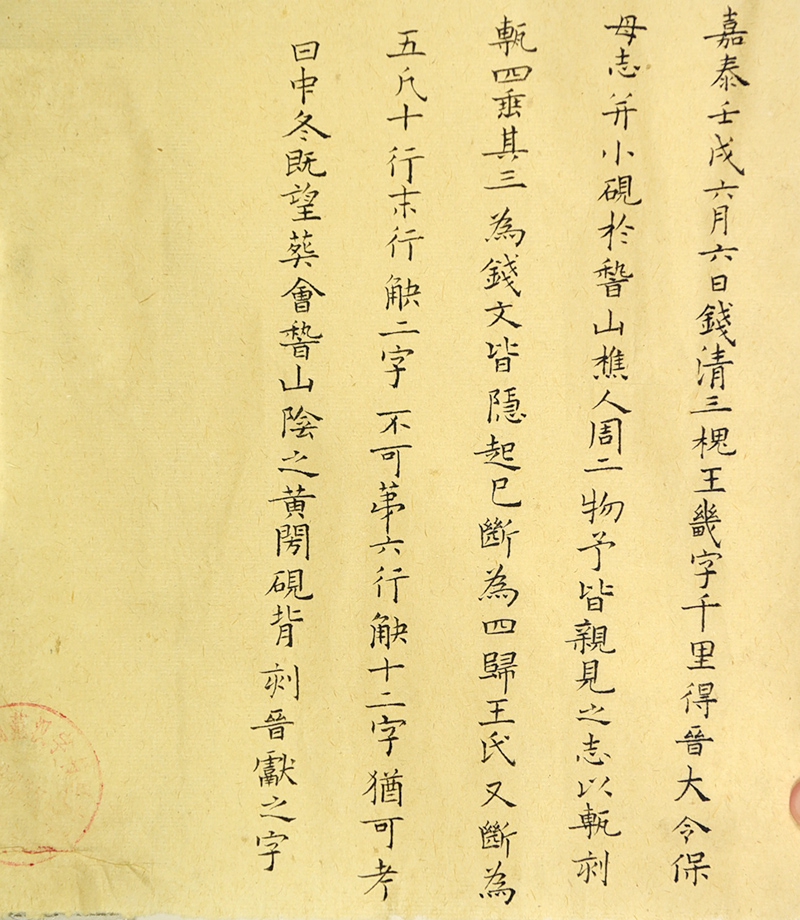 嘉泰壬戌六月六日錢清三槐王畿字千里得晉大令保
母志并小硯於稽山樵人周二物予皆親見之志以甎刻
甎四垂其三為錢文皆隱起已斷為四歸王氏又斷為
五凡十行末行觖二字不可苐六行觖十二字猶可考
曰中冬既望葬會稽山陰之黃閍硯背刻晉獻之字